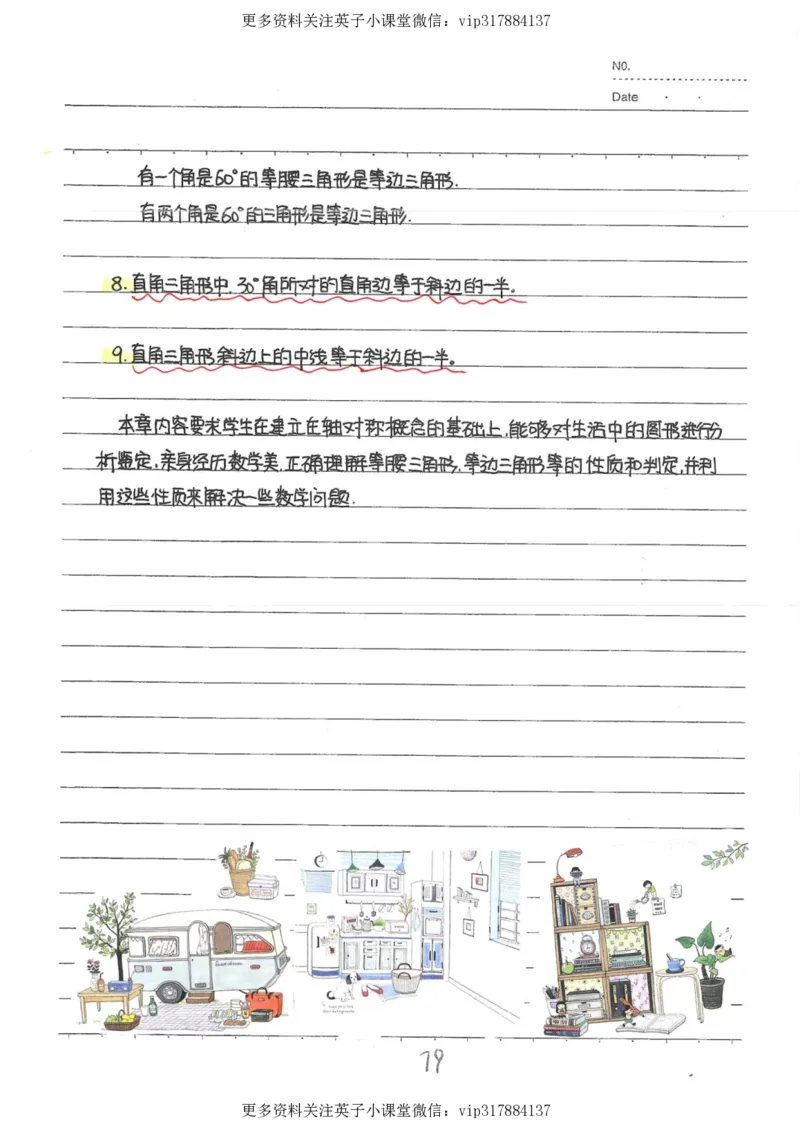 更多资料关注英子小课堂微信：vip317884137
NO.
Date
有一个角是60°的等腰三角形是等边三角形.
有两个角是60°的三角形是等边三角形.
8.直角三角形中.30°角所对的直角边等于斜边的一半。
9.直角三角形斜边上的中线等于斜边的一半。
本章内容要求学生在建立在轴对称概念的基础上,能够对生活中的图形进行分
析鉴定,亲身经历数学美.正确理解等腰三角形,等边三角形等的性质和判定,并利
用这些性质来解决一些数学问题.
19
更多资料关注英子小课堂微信：vip317884137